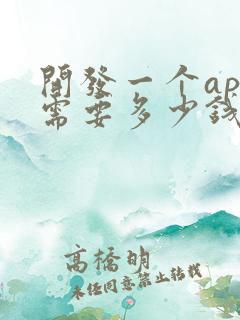 開發一个ap
需要多少錢
高橋明
未经同意禁止转载